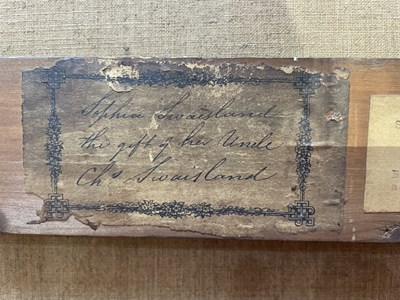 Sophia Swaisland
the gift of her Uncle
Chs Swaisland